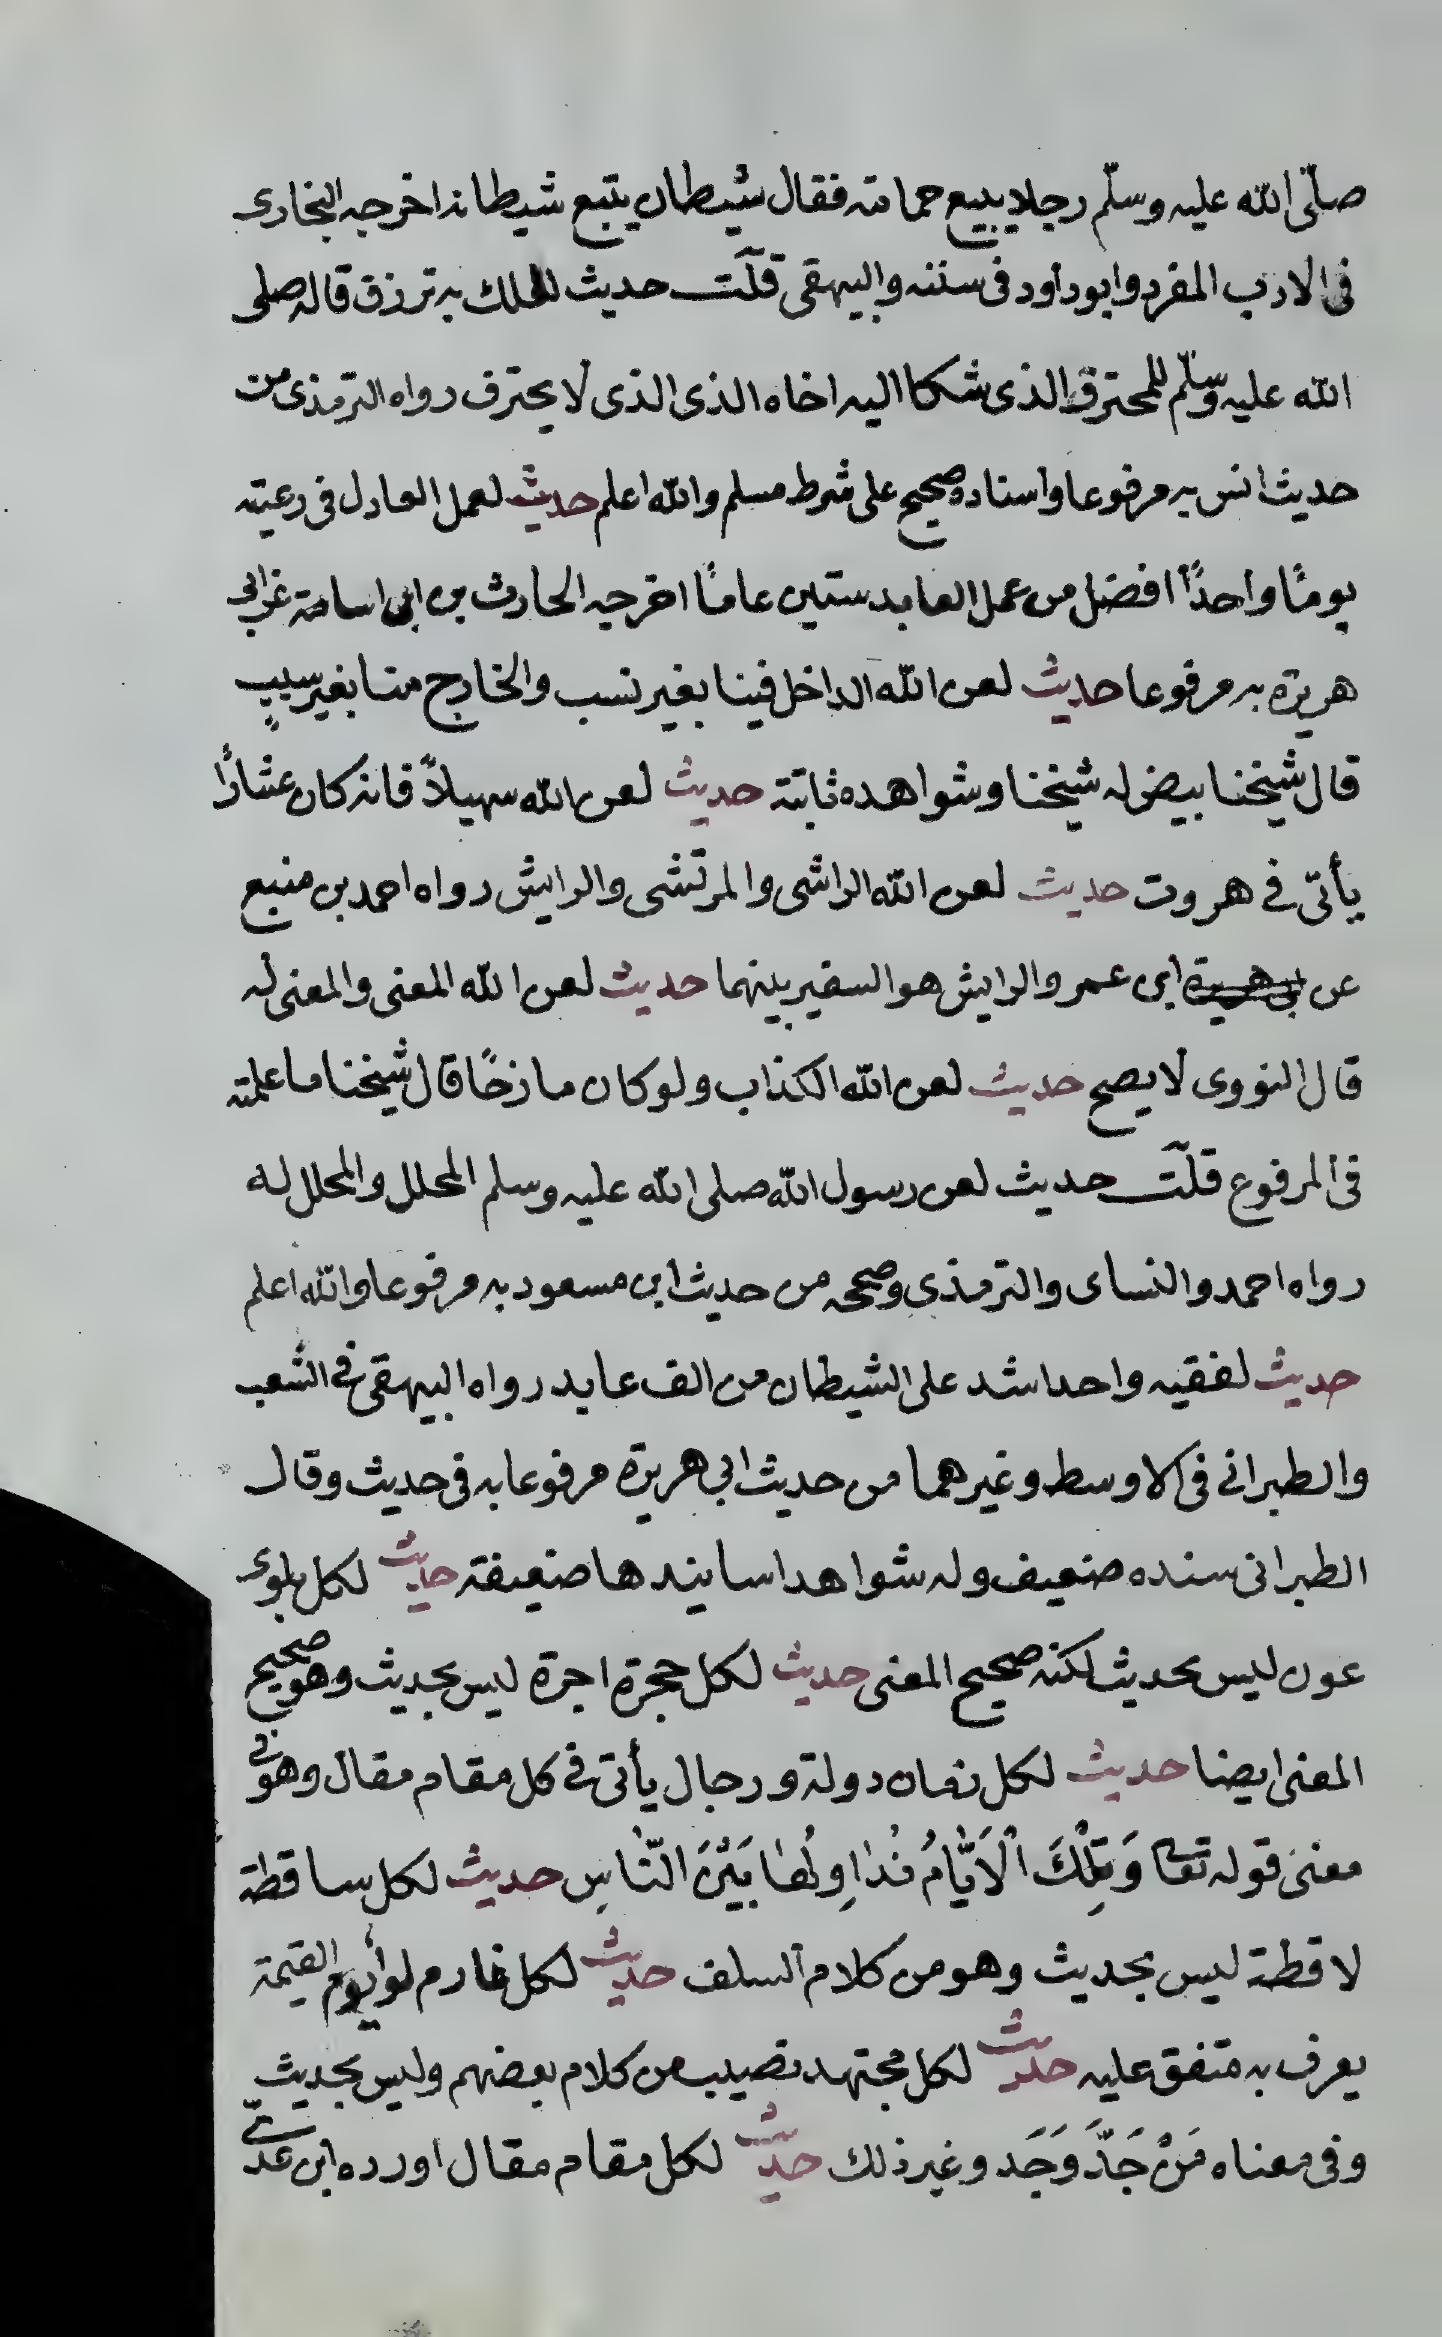 صلّى الله عليه وسلّم رجلا يبيع حمامة فقال شيطان يتبع شيطانه اخرجه البخارى
فى الادب المفرد وابو داود فى سننه والبيهقى قلت حديث لعلك به ترزق قاله صلى
الله عليه وسلّم للمحترف الذى شكا اليه اخاه الذى الذى لا يحترف رواه الترمذى من
حديث انس به مرفوعا واسناده صحيح على شرط مسلم والله اعلم حديث لعمل العادل فى رعيته
يومًا واحدًا افضل من عمل العابد ستين عامًا اخرجه الحارث بن ابى اسامة عن ابى
هريرة به مرفوعا حديث لعن الله الداخل فينا بغير نسب والخارج منا بغير سببٍ
قال شيخنا بيض له شيخنا وشواهده ثابتة حديث لعن الله سهيلاً فانه كان عشارًا
يأتى في هروت حديث لعن الله الراشى والمرتشى والرايش رواه احمد بن منيع
عن ابى هريرة ابى عمر والرايش هو السفير بينهما حديث لعن الله المغنى والمغنى له
قال النووى لا يصح حديث لعن الله الكذاب ولو كان مازحًا قال شيخنا ما علمته
فى المرفوع قلت حديث لعن رسول الله صلى الله عليه وسلم المحلل والمحلل له
رواه احمد والنساى والترمذى وصححه من حديث ابن مسعود به مرفوعا والله اعلم
حديث لفقيه واحد اشد على الشيطان من الف عابد رواه البيهقى في الشعب
والطبرانى فى الاوسط وغيرهما من حديث ابى هريرة مرفوعا به فى حديث وقال
الطبرانى سنده ضعيف وله شواهد اسانيدها ضعيفة حديث لكل بلوى
عون ليس بحديث لكنه صحيح المعنى حديث لكل حجرة اجرة ليس بحديث وهو صحيح
المعنى ايضا حديث لكل زمان دولة ورجال يأتى في كل مقام مقال وهو في
معنى قوله تعا وَتِلْكَ الْاَيَّامُ نُدَاوِلُهَا بَيْنَ النَّاسِ حديث لكل ساقطة
لاقطة ليس بحديث وهو من كلام السلف حديث لكل غادر لواء يوم القيمة
يعرف به متفق عليه حديث لكل مجتهد نصيب من كلام بعضهم وليس بحديث
وفى معناه مَنْ جَدَّ وَجَد وغير ذلك حديث لكل مقام مقال اورده ابن عدىّ